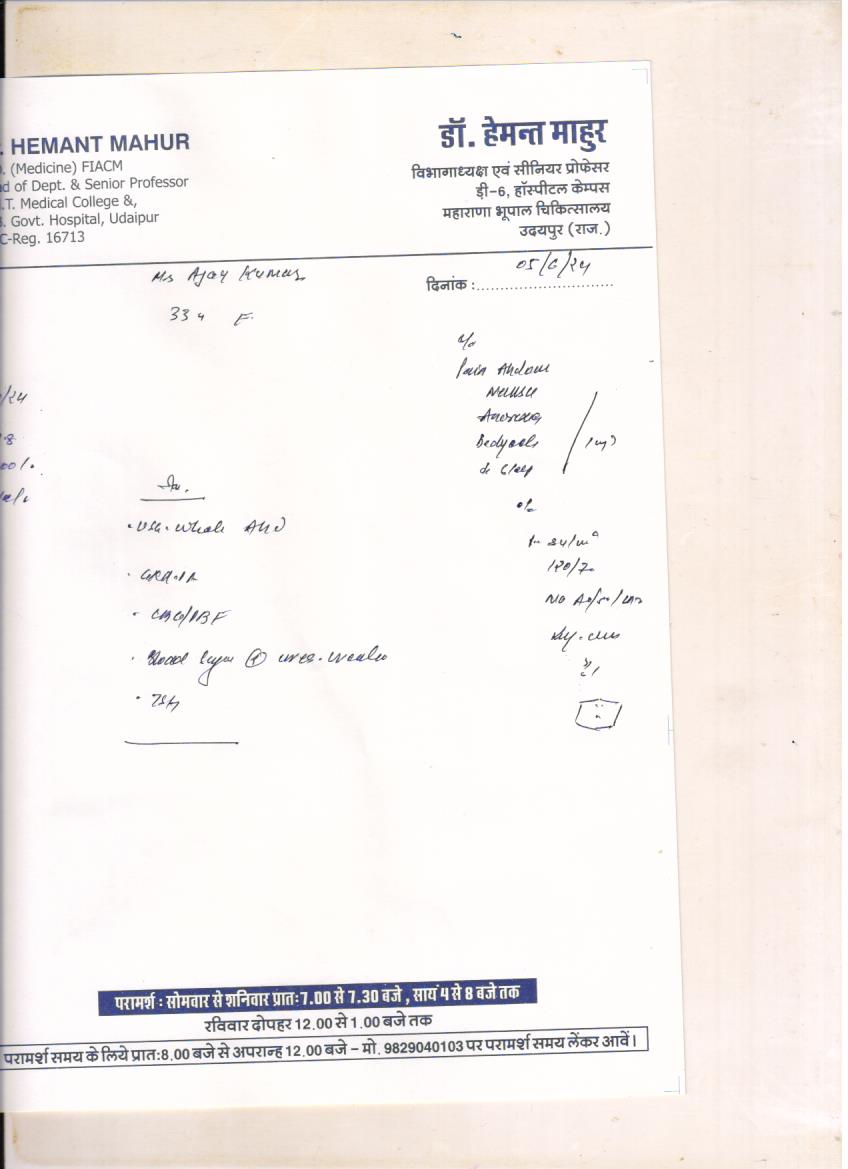 . HEMANT MAHUR
. (Medicine) FIACM
d of Dept. & Senior Professor
.T. Medical College &,
. Govt. Hospital, Udaipur
C-Reg. 16713
डॉ. हेमन्त माहुर
विभागाध्यक्ष एवं सीनियर प्रोफेसर
डी-6, हॉस्पीटल केम्पस
महाराणा भूपाल चिकित्सालय
उदयपुर (राज.)
Ms Ajay Kumar
दिनांक :.............................. 05/6/24
33 y F.
c/o
Pain Abdom
/24
Nausea
Anorexia
Bodyache
00/.
Inv.
o/e
. USG. Whole ABD
120/70
. CBC/PBF
. Blood Sugar
. TSH
परामर्श : सोमवार से शनिवार प्रातः7.00 से 7.30 बजे , सायं 4 से 8 बजे तक
रविवार दोपहर 12.00 से 1.00 बजे तक
परामर्श समय के लिये प्रातः8.00 बजे से अपरान्ह 12.00 बजे – मो. 9829040103 पर परामर्श समय लेंकर आवें।